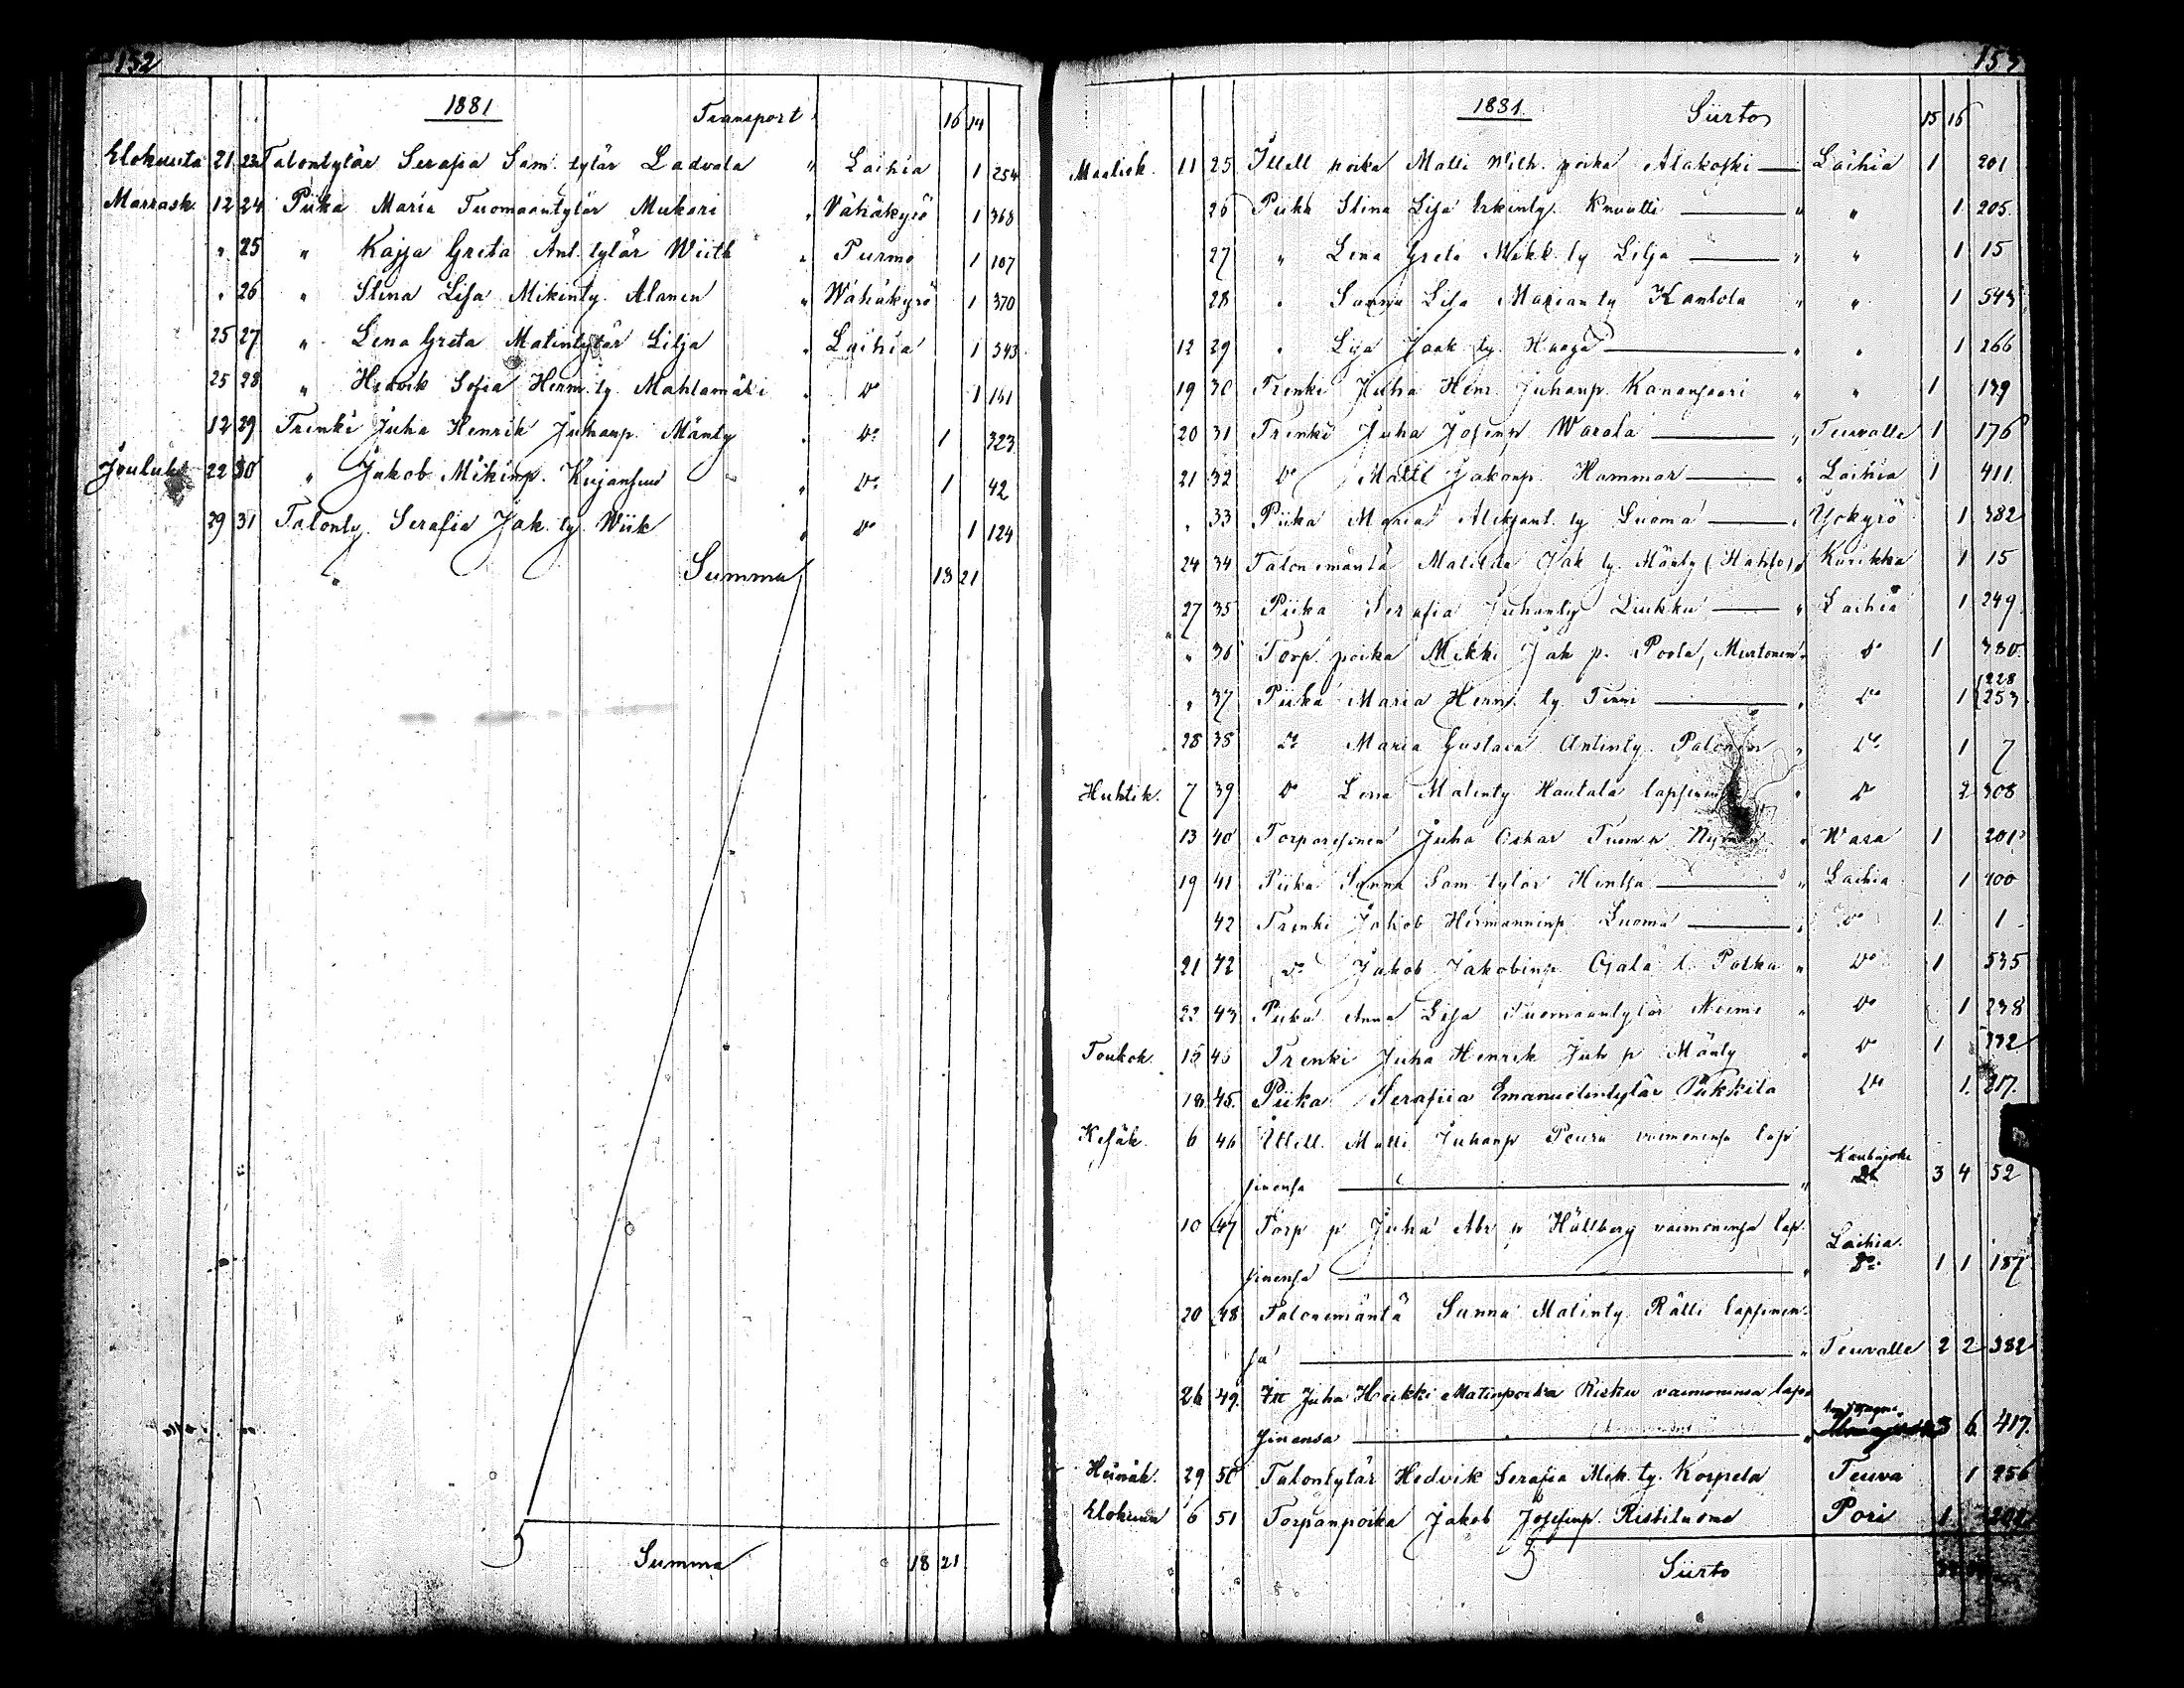 152
1881 Transport 16 14
Elokuusta 21 23 Talontytär Serafia Sam. tytär Ladvala " Laihia 1 254
Marrask. 12 24 Piika Maria Tuomaantytär Mukari " Vähäkyrö 1 368
" 25 " Kajsa Greta Ant. tytär Wiith " Purmo 1 107
" 26 " Stina Lisa Mikinty. Alanen " Wähäkyrö 1 370
25 27 " Lena Greta Matintytär Lilja " Laihia 1 343
25 28 " Hedvik Sofia Herm. ty. Mahlamäki " Do 1 141
12 29 Trenki Juha Henrik Juhanp. Mänty " Do 1 323
Jouluk. 22 30 " Jakob Mikinp. Kujansuu " Do 1 42
29 31 Talonty. Serafia Jak. ty. Wiik " Do 1 124
Summa 18 21
Summa 18 21
153
1881 Siirto 15 16
Maalisk. 11 25 Itsell. poika Matti Wilh. poika Alakoski Laihia 1 201
26 Piika Stina Lisa Erkinty. Knuutti " " 1 205
27 " Lena Greta Mikk. ty Lilja " " 1 15
28 " Sanna Lisa Marian ty Kantola " " 1 543
12 29 " Lisa Jaak. ty. Haaga " " 1 266
19 30 Trenki Juha Henr. Juhanp. " " 1 139
20 31 Trenki Juha Josefinp. Warala " Teuvalle 1 176
21 32 Do Matti Jakonp. Hammar " Laihia 1 411
" 33 Piika Maria Aleksant. ty Luoma " Isokyrö 1 382
24 34 Talon emäntä Matilda Jak ty. Mänty (Hahto) " Kurikka 1 15
27 35 Piika Serafia Juhanty Liukku " Laihia 1 249
" 36 Torp. poika Mikki Jak p. Perta, Murtonen " Do 1 380
" 37 Piika Maria Herm. ty. " Do 1 228 253
28 38 Do Maria Gustava Antinty. Palonen " Do 1 7
Huhtik. 7 39 Do Lena Matinty Hautala " Do 2 308
13 40 Juha Oskar Tuom. p. Nyman " Wasa 1 201
19 41 Piika Sanna Sam. tytär Hintsa " Laihia 1 400
42 Trenki Jakob Hermanninp. Luoma " Do 1 1
21 42 Do Jakob Jakobinp. Ojala l. Polkka " Do 1 535
22 43 Piika Anna Lisa Tuomaantytär Niemi " Do 1 238
Toukok. 15 45 Trenki Juha Henrik Juh p Mänty " Do 1 332
18 45. Piika Serafiia Emanuelintytär Pukkila Do 1. 217.
Kesäk. 6 46 Itsell. Matti Juhanp Peura vaimonensa lap
sinensa " Kauhajoki 3 4 52
10 47 Torp p Juha Abr p Hällberg vaimonensa lap.
sinensa " Laihia. 1 1 157
20 48 Talonemäntä Sanna Matinty. Rätti lapsinen-
sa " Teuvalle 2 2 382
26 49. Itt Juha Heikki Matinpoika Risku vaimoninsa lap-
sinensa " 3 6 417.
Heinäk. 29 50 Talontytär Hedvik Serafia Mik. ty. Korpela Teuva 1 256
Elokuun 6 51 Torpanpoika Jakob Josefinp. Ristiluoma Pori 1
Siirto